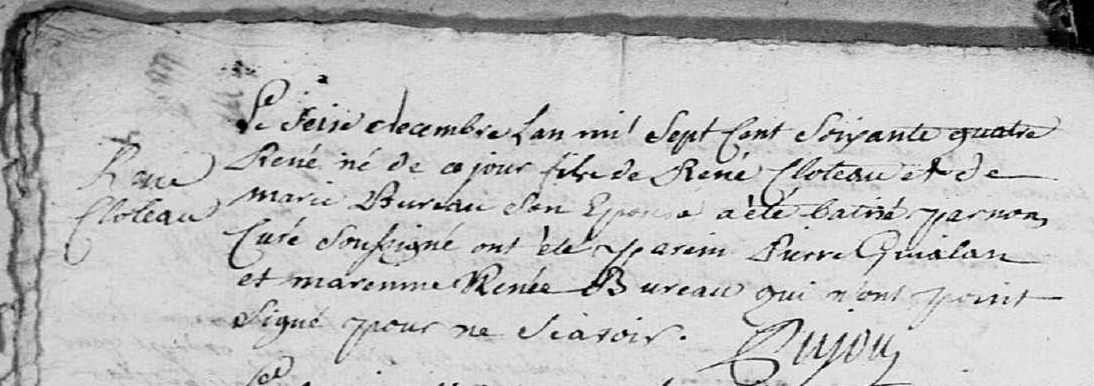 Le seise decembre Lan mil Sept Cent Soixante quatre
René
Cloteau
René né de ce jour fils de René Cloteau et de
marie Bureau Son Epouse a été batisé par nous
Curé Soussigné ont été parein Pierre Guialan
et marenne Renée Bureau qui n'ont point
Signé pour ne Scavoir.
Dujou